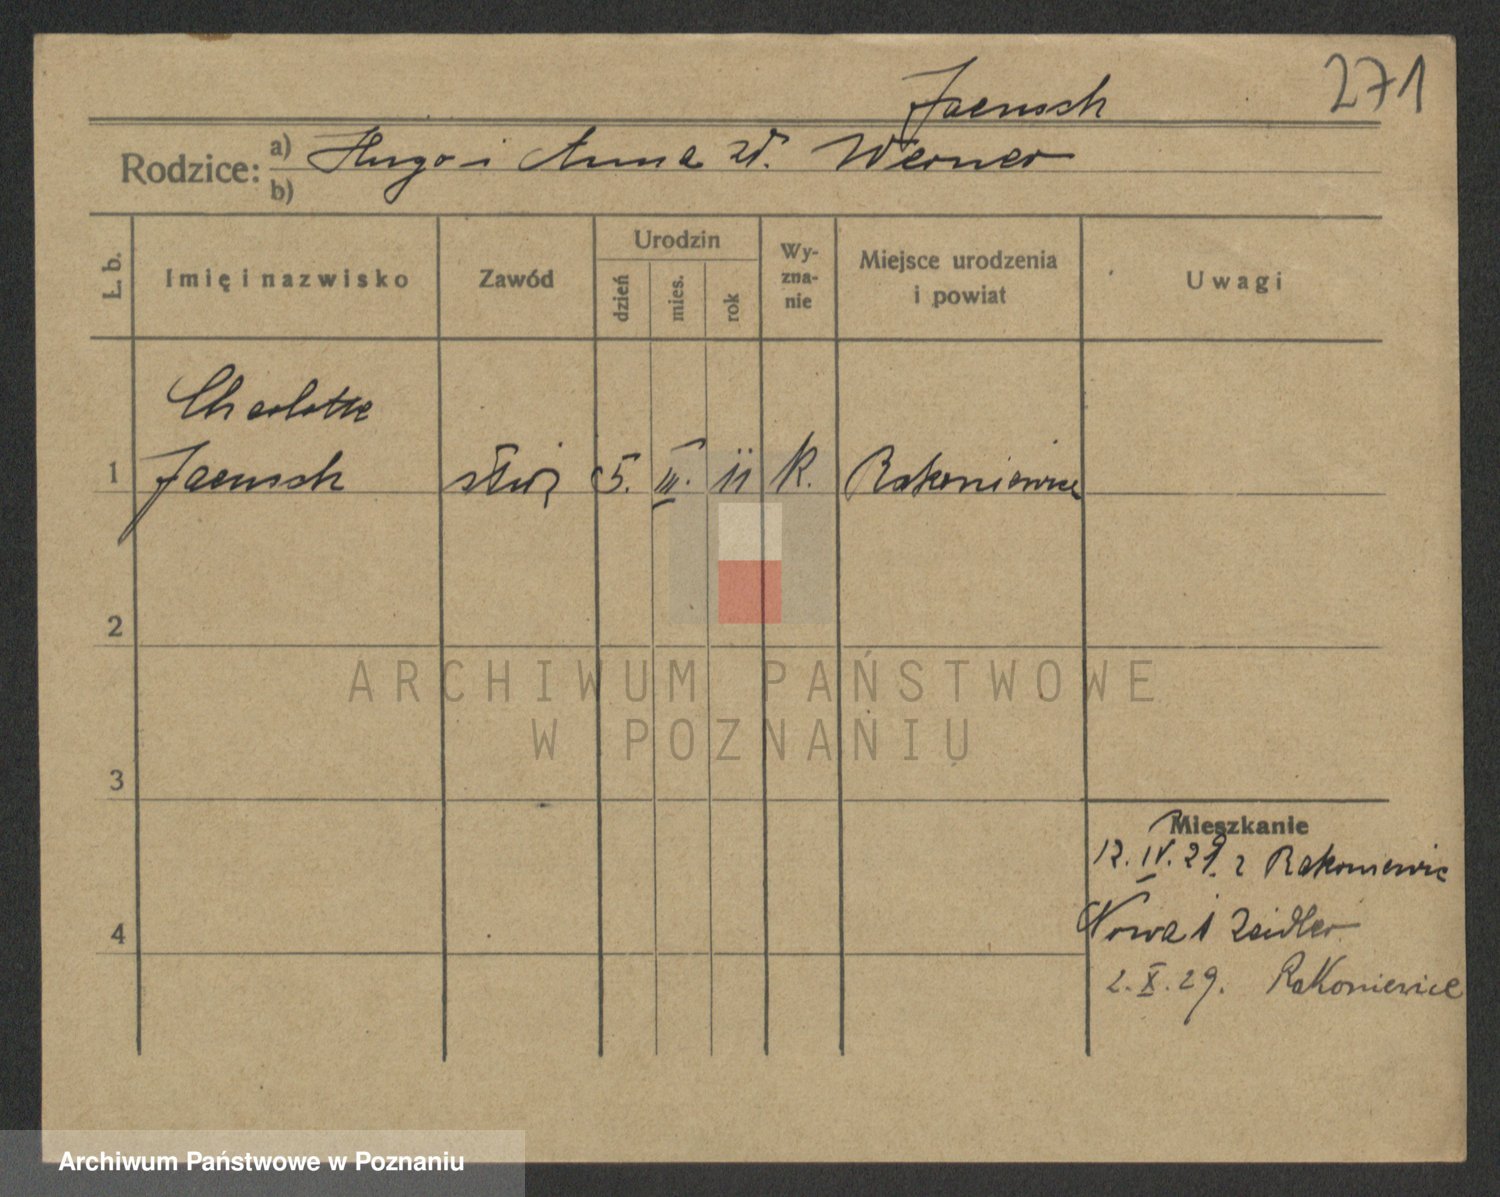 271
Jaensch
Rodzice: a) Hugo i Anna zd. Werner
b)
L. b.
Imię i nazwisko
Zawód
Urodzin
dzień
mies.
rok
Wy-
zna-
nie
Miejsce urodzenia
i powiat
Uwagi
Charlotte
1 Jaensch służ 5. III. 11 K. Rakoniewice
2
3
4
Mieszkanie
12. IV. 29. z Rakoniewic
Nowa 1 Zeidler
2. X. 29. Rakoniewice
ARCHIWUM PAŃSTWOWE
W POZNANIU
Archiwum Państwowe w Poznaniu